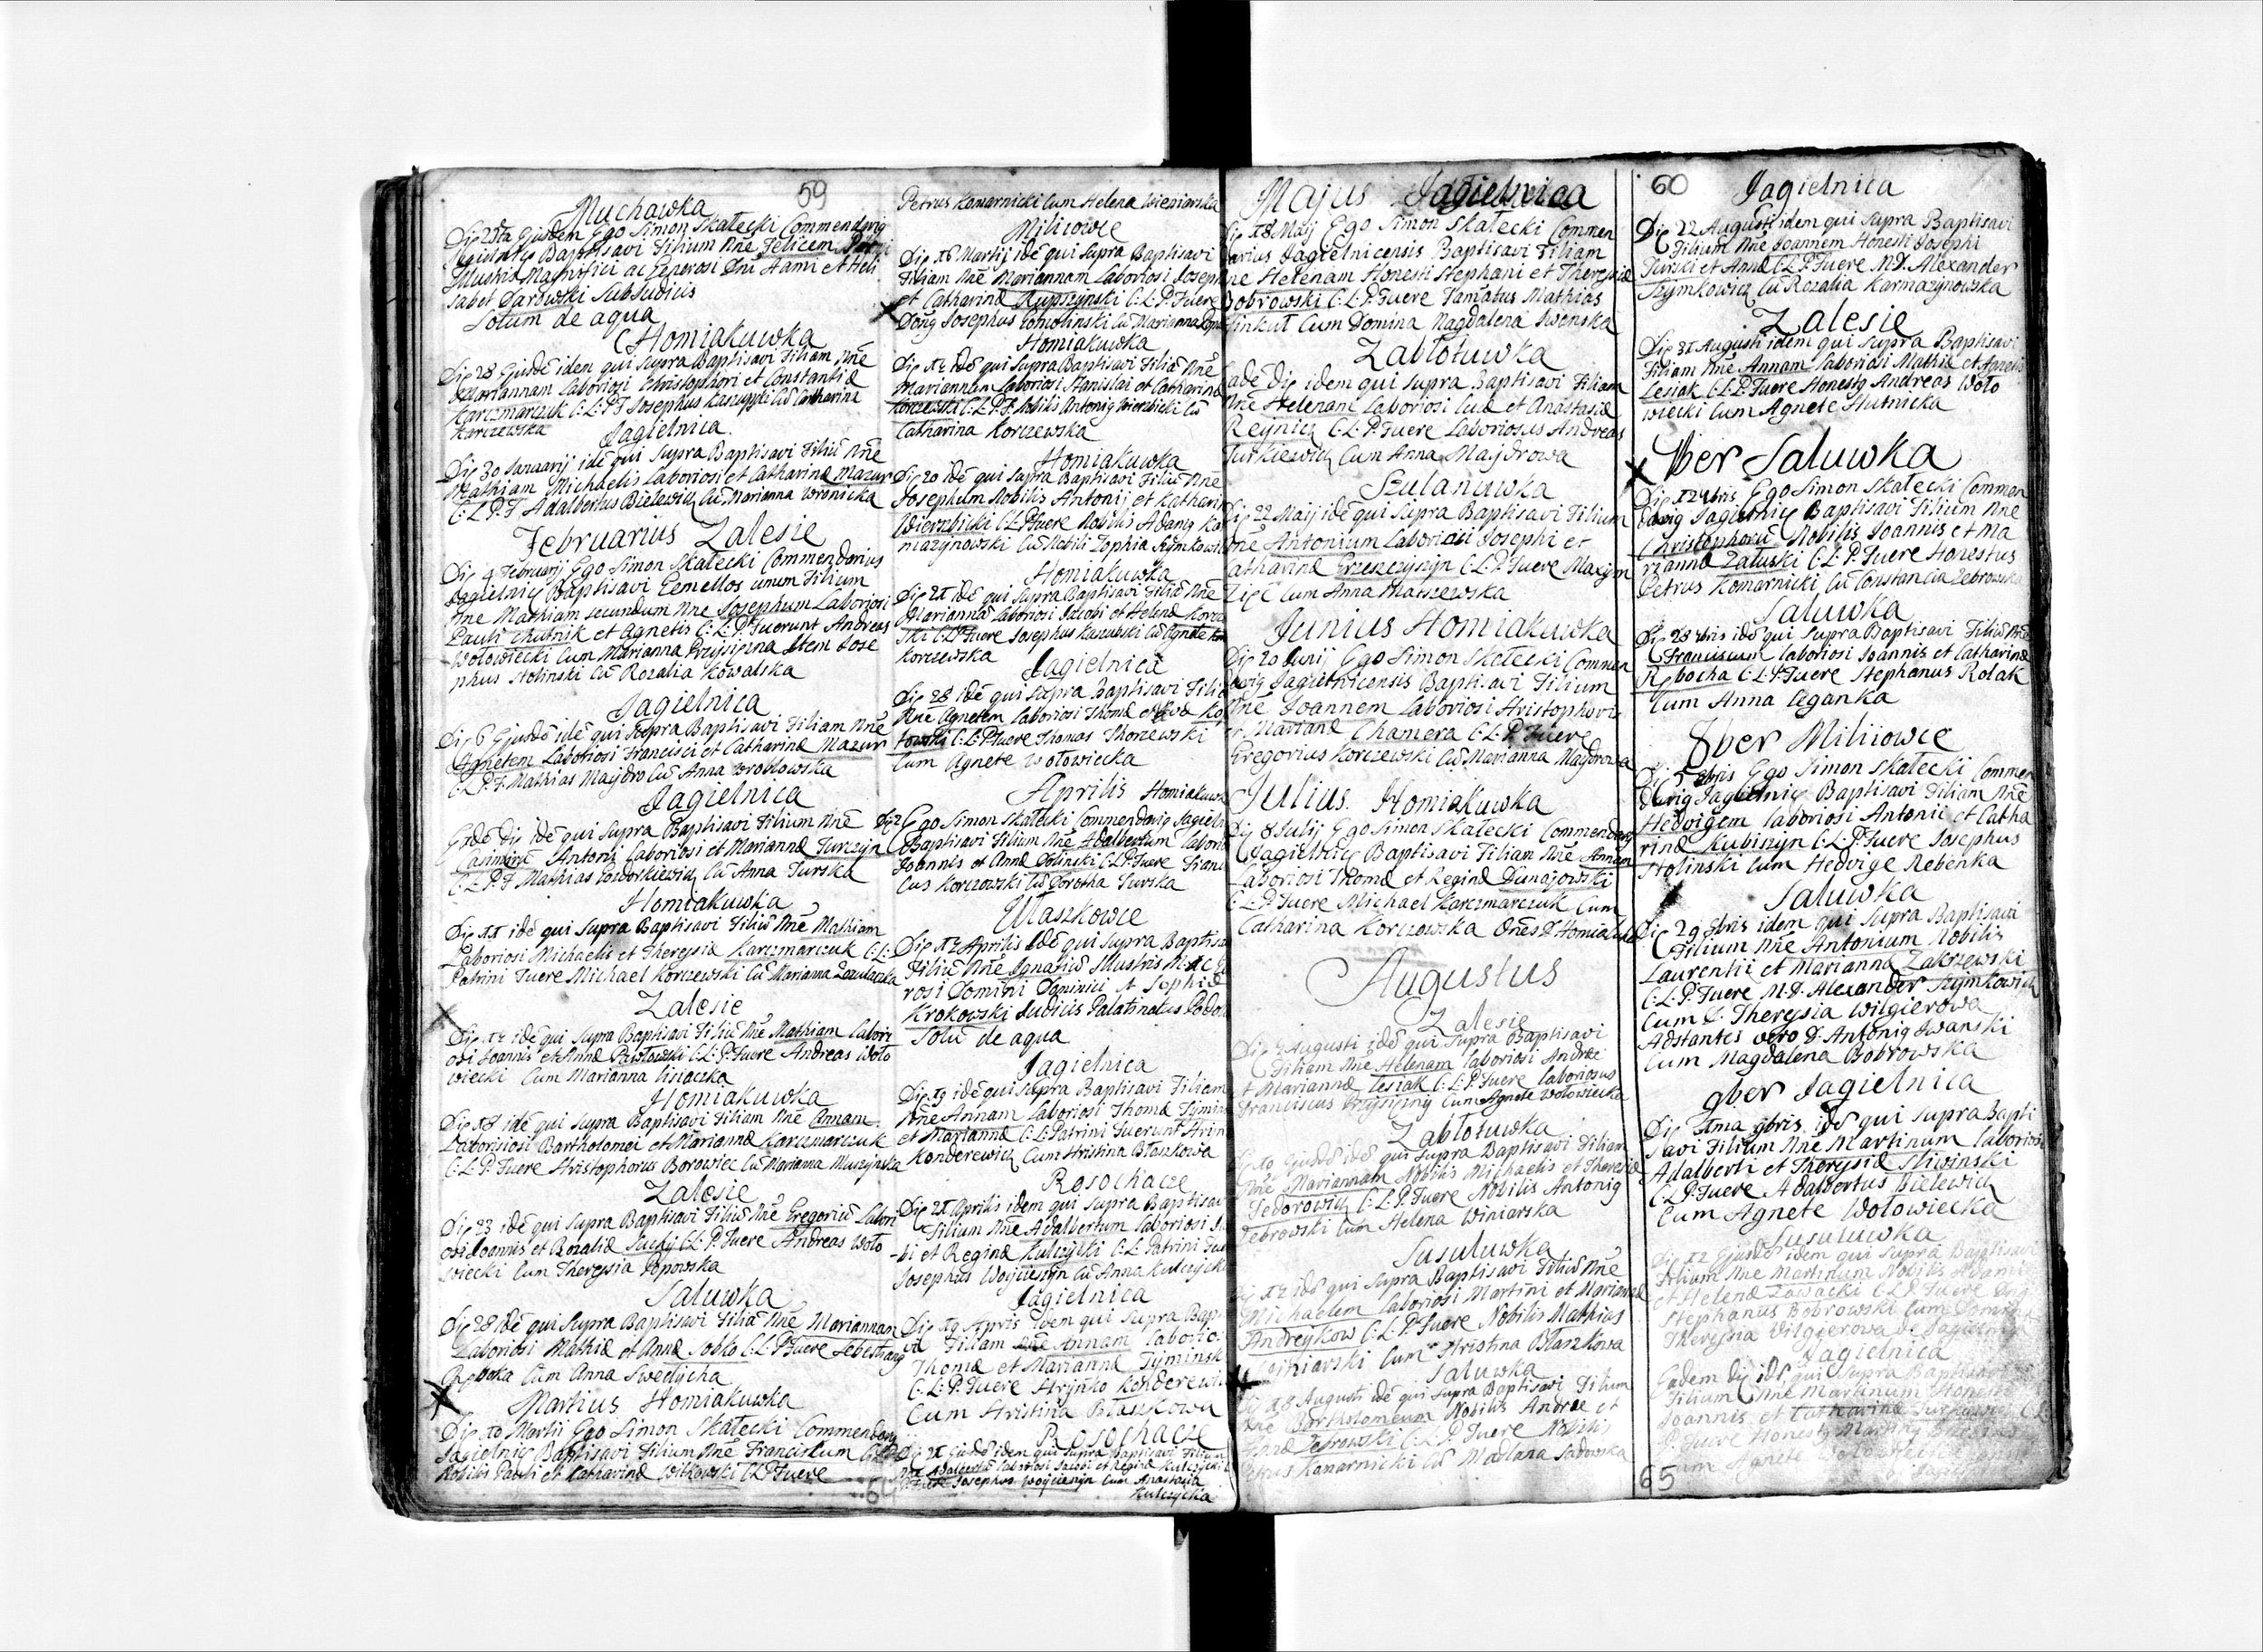 59
Muchawka
Die 25ta Ejusdem Ego Simon Skałecki Commendarig
Baptisavi Filium Nñe Felicem
Illustris Magnifici ac Generosi Dñi Adami et Heli
sabet Darowski SubJudicis
Solum de aqua
Homiakuwka
Die 28 Ejusdē idem qui supra Baptisavi Filiam Nñe
Mariannam Laboriosi Christophori et Constantiæ
Karczmarczuk C:L:P:F Josephus Cū Catharina
Korczewska
Jagielnica
Die 30 Januarij idē qui supra Baptisavi Filiū Nñe
Mathiam Michaelis Laboriosi et Catharinæ Mazur
C:L:P:F Adalbertus Bielewicz Cū Marianna Wronicka
Februarius Zalesie
Die 4 Februarij Ego Simon Skałecki Commendarius
Jagielnic Baptisavi Gemellos unum Filium
Nñe Mathiam secundum Nñe Josephum Laboriosi
Pauli Hutnik et Agnetis C:L:P:Fuerunt Andreas
Wołowiecki Cum Marianna Przysiężna Item Jose
phus Stolinski Cū Rozalia Kowalska
Jagielnica
Die 6 Ejusdē idē qui supra Baptisavi Filiam Nñe
Agnetem Laboriosi Francisci et Catharinæ Mazur
C:L:P:F. Mathias Majdro Cū Anna Wroblowska
Jagielnica
Eadē Die idē qui supra Baptisavi Filium Nñe
Casimirū Antonij Laboriosi et Mariannæ Turczyn
C:L:P:F Mathias Cū Anna Turska
Homiakuwka
Die 11 idē qui supra Baptisavi Filiū Nñe Mathiam
Laboriosi Michaelis et Theresiæ Karczmarczuk C:L:
Patrini Fuere Michael Korczewski Cū Marianna
Zalesie
Die 12 idē qui supra Baptisavi Filiū Nñe Mathiam Labori
osi Joannis et Annæ Pawłowski C:L:P:Fuere Andreas Woło
wiecki Cum Marianna Lisiaczka
Homiakuwka
Die 18 idē qui supra Baptisavi Filiam Nñe Annam
Laboriosiosi Bartholomei et Mariannæ Karczmarczuk
C:L:P:Fuere Hristophorus Borowiec Cū Marianna Muszynska
Zalesie
Die 23 idē qui supra Baptisavi Filiū Nñe Gregoriū Labori
osi Joannis et Rozaliæ Suchy C:L:P:Fuere Andreas Woło
wiecki Cum Theresia Popowska
Saluwka
Die 28 idē qui supra Baptisavi Filiā Nñe Mariannam
Laboriosi Mathiæ et Annæ Sobko C:L:P:Fuere Sebestiang
Cum Anna Swedycha
Martius Homiakuwka
Die 10 Martii Ego Simon Skałecki Commendarig
Jagielnic Baptisavi Filium Nñe Franciscum
Nobilis Pauli et Catharinæ Witkowski C:L:P:Fuere
Petrus Komarnicki Cum Helena Wieniarska
Miliiowce
Die 16 Martij idē qui supra Baptisavi
Filiam Nñe Mariannam Laboriosi Joseph
et Catharinæ Rupszynski C:L:P:Fuere
Dong Josephus Gomolinski Cū Marianna
Homiakuwka
Die 12 idē qui supra Baptisavi Filiā Nñe
Mariannam Laboriosi Stanislai et Catharinæ
Korczewski C:L:P:F. Nobilis Antonig Wierzbicki Cū
Catharina Korczewska
Homiakuwka
Die 20 idē qui supra Baptisavi Filiū Nñe
Josephum Nobilis Antonij et Kathari
Wierzbicki C:L:P:Fuere Nobilis Adamg Ka
mazynowski Cū Nobili Zophia Szymkowi
Homiakuwka
Die 21 idē qui supra Baptisavi Filiā Nñe
Mariannā Laboriosi Jacobi et Helenæ Korcz
ski C:L:P:Fuere Josephus Kazubski Cū Agnete
Korczewska
Jagielnica
Die 28 idē qui supra Baptisavi Filia
Nñe Agnetem Laboriosi Thomæ et
C:L:P:Fuere Thomas Thorzewski
Cum Agnete Wołowiecka
Aprilis Homiakuwk
Die 2 Ego Simon Skałecki Commendarig Jagieln
Baptisavi Filium Nñe Adalbertum Labori
Joannis et Annæ Dolinski C:L:P:Fuere Franc
cus Korczowski Cū Dorotha Turska
Ułaszkowce
Die 12 Aprilis Idē qui supra Baptisa
Filiū Nñe Ignatiū Illustris M: ac G
rosi Domini Dominici et Sophiæ
Krokowski Judicis Palatinatus Podo
Solū de aqua
Jagielnica
Die 19 idē qui supra Baptisavi Filiam
Nñe Annam Laboriosi Thomæ Tymin
et Mariannæ C:L:Patrini Fuerunt Hrin
Konderewicz Cum Hristina Błaszkowa
Rosochacze
Die 21 Aprilis idem qui supra Baptisavi
Filium Nñe Adalbertum Laboriosi
bi et Reginæ Kulczycki C:L Patrini Fue
Josephus Woycieszyn Cū Anna Kulczycka
Jagielnica
Die 19 Apris idem qui supra Bap
Filiam Nñe Annam Laborio
Thomæ et Mariannæ Tyminsk
C:L:P:Fuere Hryńko Konderewi
Cum Hristina Błaszkowa
Rosochacze
Die 21 Ejusdē idem qui supra Baptisavi Filium
Nñe Adalbertū Laboriosi Jacobi et Reginæ Kulczycki
Fuere Josephus Woyciesyn Cum Anastasia
Kulczycka
Majus Jagielnica
Die 18 Maij Ego Simon Skałecki Commen
darius Jagielnicensis Baptisavi Filiam
Nñe Helenam Honesti Stephani et Theresiæ
Bobrowski C:L:P:Fuere Famatus Mathias
Cum Domina Magdalena Iwenska
Zabłotuwka
Eadē Die idem qui supra Baptisavi Filiam
Nñe Helenam Laboriosi Lucæ et Anastasiæ
Reynicz C:L:P:Fuere Laboriosus Andreas
Turkiewicz Cum Anna Majdrowa
Szulanuwka
Die 22 Maij idē qui supra Baptisavi Filium
Nñe Antonium Laboriosi Josephi et
Catharinæ Grzeszczyszyn C:L:P:Fuere Maxym
Cum Anna Matszewska
Junius Homiakuwka
Die 20 Junij Ego Simon Skałecki Commen
darig Jagielnicensis Baptisavi Filium
Nñe Joannem Laboriosi Hristophoris
et Mariannæ Chamera C:L:P:Fuere
Gregorius Korczewski Cū Marianna Maydrowa
Julius. Homiakuwka
Die 8 Julij Ego Simon Skałecki Commendarig
Jagielnic Baptisavi Filiam Nñe Annam
Laboriosi Thomæ et Reginæ Dunajowski
C:L:P:Fuere Michael Karczmarczuk Cum
Catharina Korczowska Oñes D Homiakuw
Augustus
Zalesie
Die 2 Augusti idē qui supra Baptisavi
Filiam Nñe Helenam Laboriosi Andreæ
et Mariannæ Lesiak C:L:P:Fuere Laboriosus
Franciscus Przysiężny Cum Agnete Wołowiecka
Zabłotuwka
Die 10 Ejusdē idē qui supra Baptisavi Filiam
Nñe Mariannam Nobilis Michaelis et Theresiæ
Fedorowicz C:L:P:Fuere Nobilis Antonig
Zebrowski Cum Helena Winiarska
Susuluwka
Die 12 idē qui supra Baptisavi Filiū Nñe
Michaelem Laboriosi Martini et Mariannæ
Andreykow C:L:P:Fuere Nobilis Mathias
Winiarski Cum Hristina Błaszkowa
Saluwka
Die 18 Augusti idē qui supra Baptisavi Filium
Nñe Bartholomeum Nobilis Andreæ et
Zebrowski C:L:P:Fuere Nobilis
Petrus Kamarnicki Cū Madlana Sadowska
60
Jagielnica
Die 22 Augusti idem qui supra Baptisavi
Filium Nñe Joannem Honesti Josephi
Turski et Annæ C:L:P:Fuere M.D. Alexander
Szymkowicz Cū Rozalia Karmazynowska
Zalesie
Die 31 Augusti idem qui supra Baptisavi
Filiam Nñe Annam Laboriosi Mathiæ et Agnetis
Lesiak C:L:P:Fuere Honestg Andreas Woło
wiecki Cum Agnete Hutnicka
7ber Saluwka
Die 12 7bris Ego Simon Skałecki Commen
darig Jagielnic Baptisavi Filium Nñe
Christophorū Nobilis Joannis et Ma
riannæ Załuski C:L:P:Fuere Honestus
Petrus Komarnicki Cū Constancia Zebrowska
Saluwka
Die 28 7bris idē qui supra Baptisavi Filiū Nñe
Franciscum Laboriosi Joannis et Catharinæ
Rybocha C:L:P:Fuere Stephanus Rolak
Cum Anna Cyganka
8ber Miliiowce
Die 5 8bris Ego Simon Skałecki Commen
darig Jagielnic Baptisavi Filiam Nñe
Hedvigem Laboriosi Antonii et Catha
rinæ Kubiszyn C:L:P:Fuere Josephus
Stolinski Cum Hedvige Rebenka
Saluwka
Die 29 8bris idem qui supra Baptisavi
Filium Nñe Antonium Nobilis
Laurentii et Mariannæ Zakrzewski
C:L:P:Fuere M:D: Alexander Szymkowicz
Cum D. Theresia Wilgierowa
Adstantes vero D. Antonig Iwanski
Cum Magdalena Bobrowska
9ber Jagielnica
Die 11ma 9bris idē qui supra Bapti
savi Filium Nñe Martinum Laboriosi
Adalberti et Theresiæ Sliwinski
C:L:P:Fuere Adalbertus Bielewicz
Cum Agnete Wołowiecka
Susuluwka
Die 12 Ejusdē idem qui supra Baptisavi
Filium Nñe Martinum Nobilis Adami
et Helenæ Zawacki C:L:P:Fuere Dng
Stephanus Bobrowski Cum Domina
Theresia Vilgierowa De Jagielnic
Jagielnica
Eadem Die idē qui supra Baptisavi
Filium Nñe Martinum Honesti
Joannis et Catharinæ
P:Fuere Honestg Marting
Cum Agnete
65